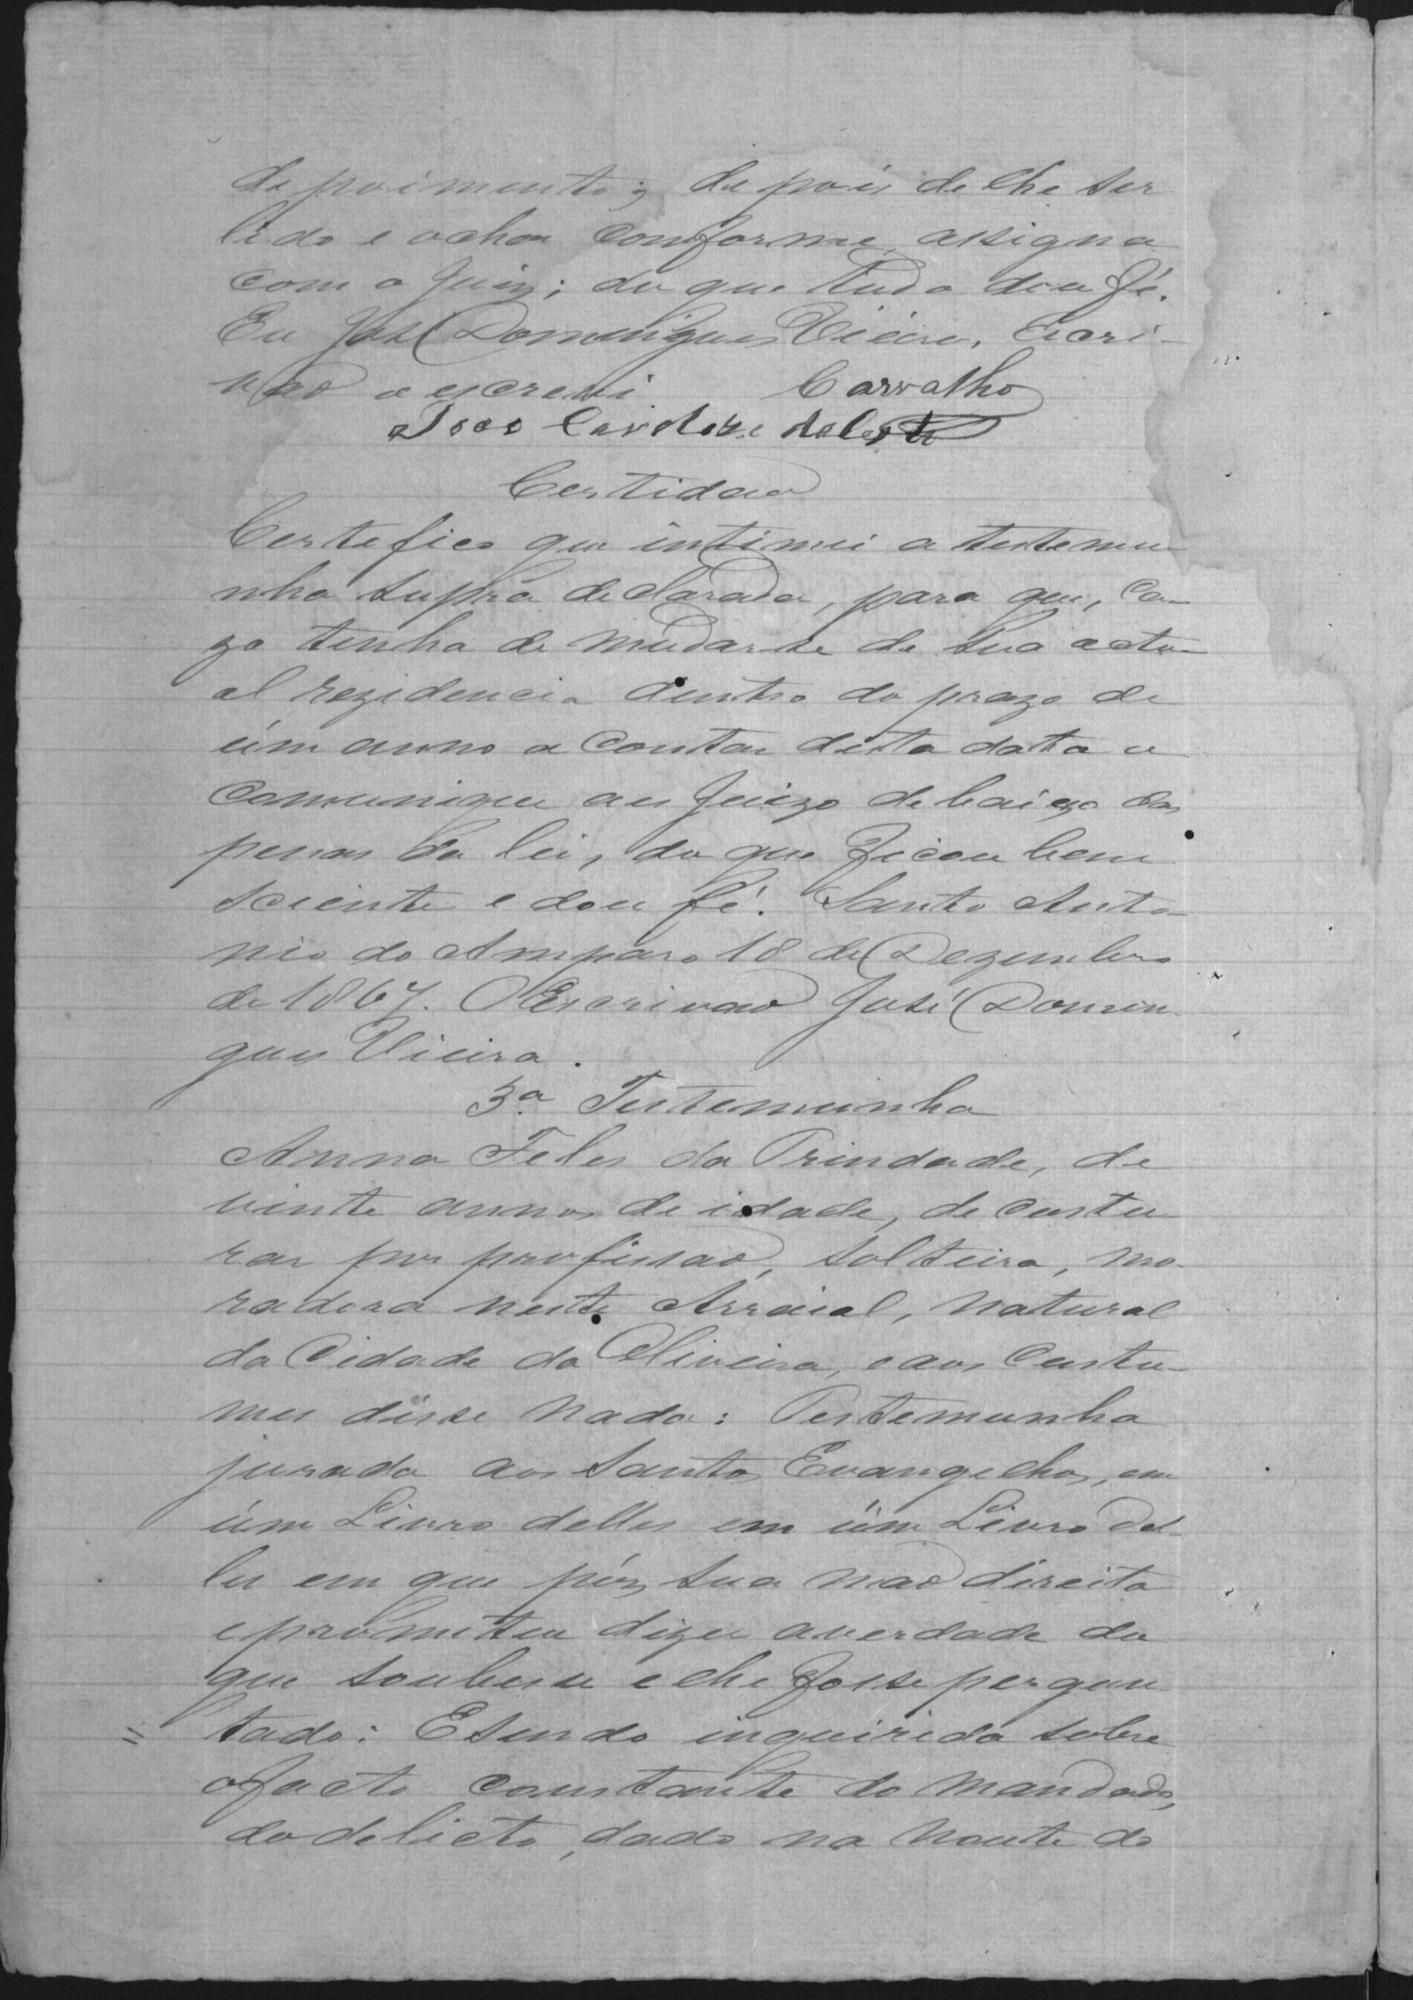 depoimento; depois de lhe ser
lido e achar conforme, assigna
com o Juiz; do que tudo dou fé.
Eu José Domingues Vieira, Escri-
vão o escrevi Carvalho
João Cardozo
Certidão
Certefico que intimei a testemu
nha supra declarada, para que, ca-
zo tenha de mudar-se de sua actu-
al rezidencia dentro do prazo de
úm anno a contar desta data o
comunique ao Juizo debaixo das
penas da lei, do que ficou bem
sciente e dou fé. Santo Anto-
nio do Amparo 18 de Dezembro
de 1867. O Escrivão José Domin
gues Vieira.
3ª Testemunha
Anna Teles da Trindade, de
vinte annos de idade, de custu
rar por profissão, solteira, mo-
radera neste Arraial, natural
da Cidade da Oliveira, e aos custu-
mes disse nada: Testemunha
jurada aos Santos Evangelhos, em
úm Livro delles em úm Livro del-
les em que pôz sua mão direita
e prometeu dizer averdade do
que soubesse e lhe fosse pergun
tado: E sendo inquirida sobre
o facto constante do mandado,
do delicto, dado na noute do